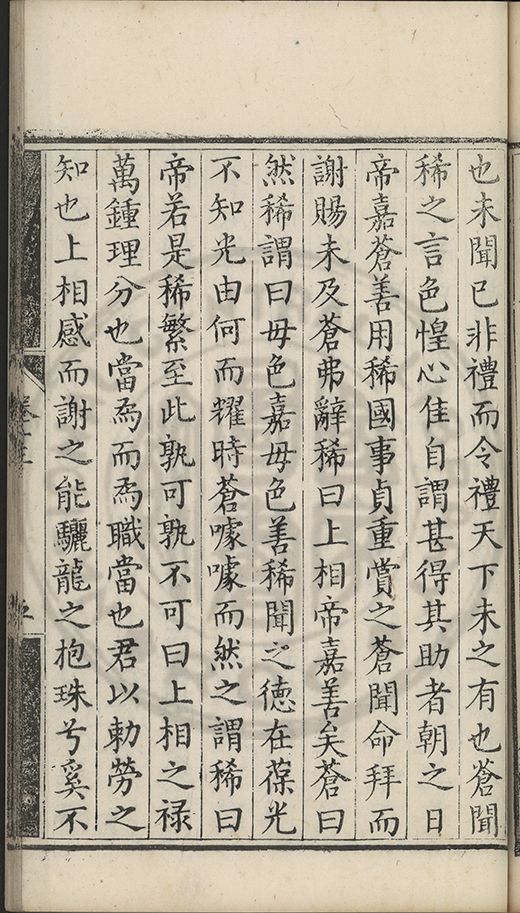 也未聞已非禮而令禮天下未之有也蒼聞
稀之言色惶心隹自謂甚得其助者朝之日
帝嘉蒼善用稀國事貞重賞之蒼聞命拜而
謝賜未及蒼弗辭稀曰上相帝嘉善矣蒼曰
然稀謂曰毋色嘉毋色善稀聞之徳在葆光
不知光由何而耀時蒼噱噱而然之謂稀曰
帝若是稀繁至此孰可孰不可曰上相之禄
萬鍾理分也當爲而爲職當也君以勅勞之
知也上相感而謝之能驪龍之抱珠兮奚不